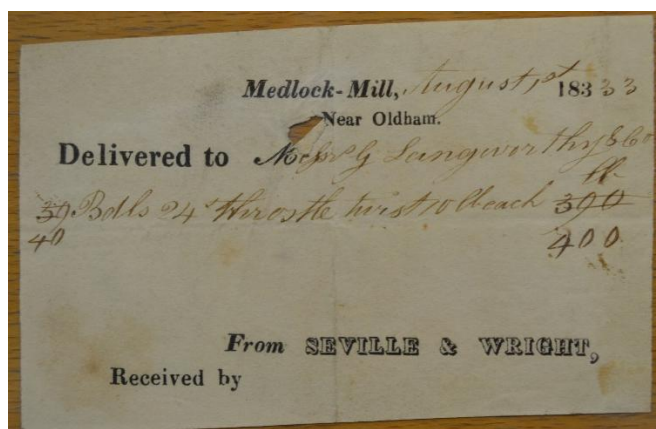 Medlock-Mill, August 1st 183 33
Near Oldham.
Delivered to Messrs G Langworthy & Co
lb
39 Bdls 24 throstle twist 10 lb each 390
40 400
From SEVILLE & WRIGHT,
Received by